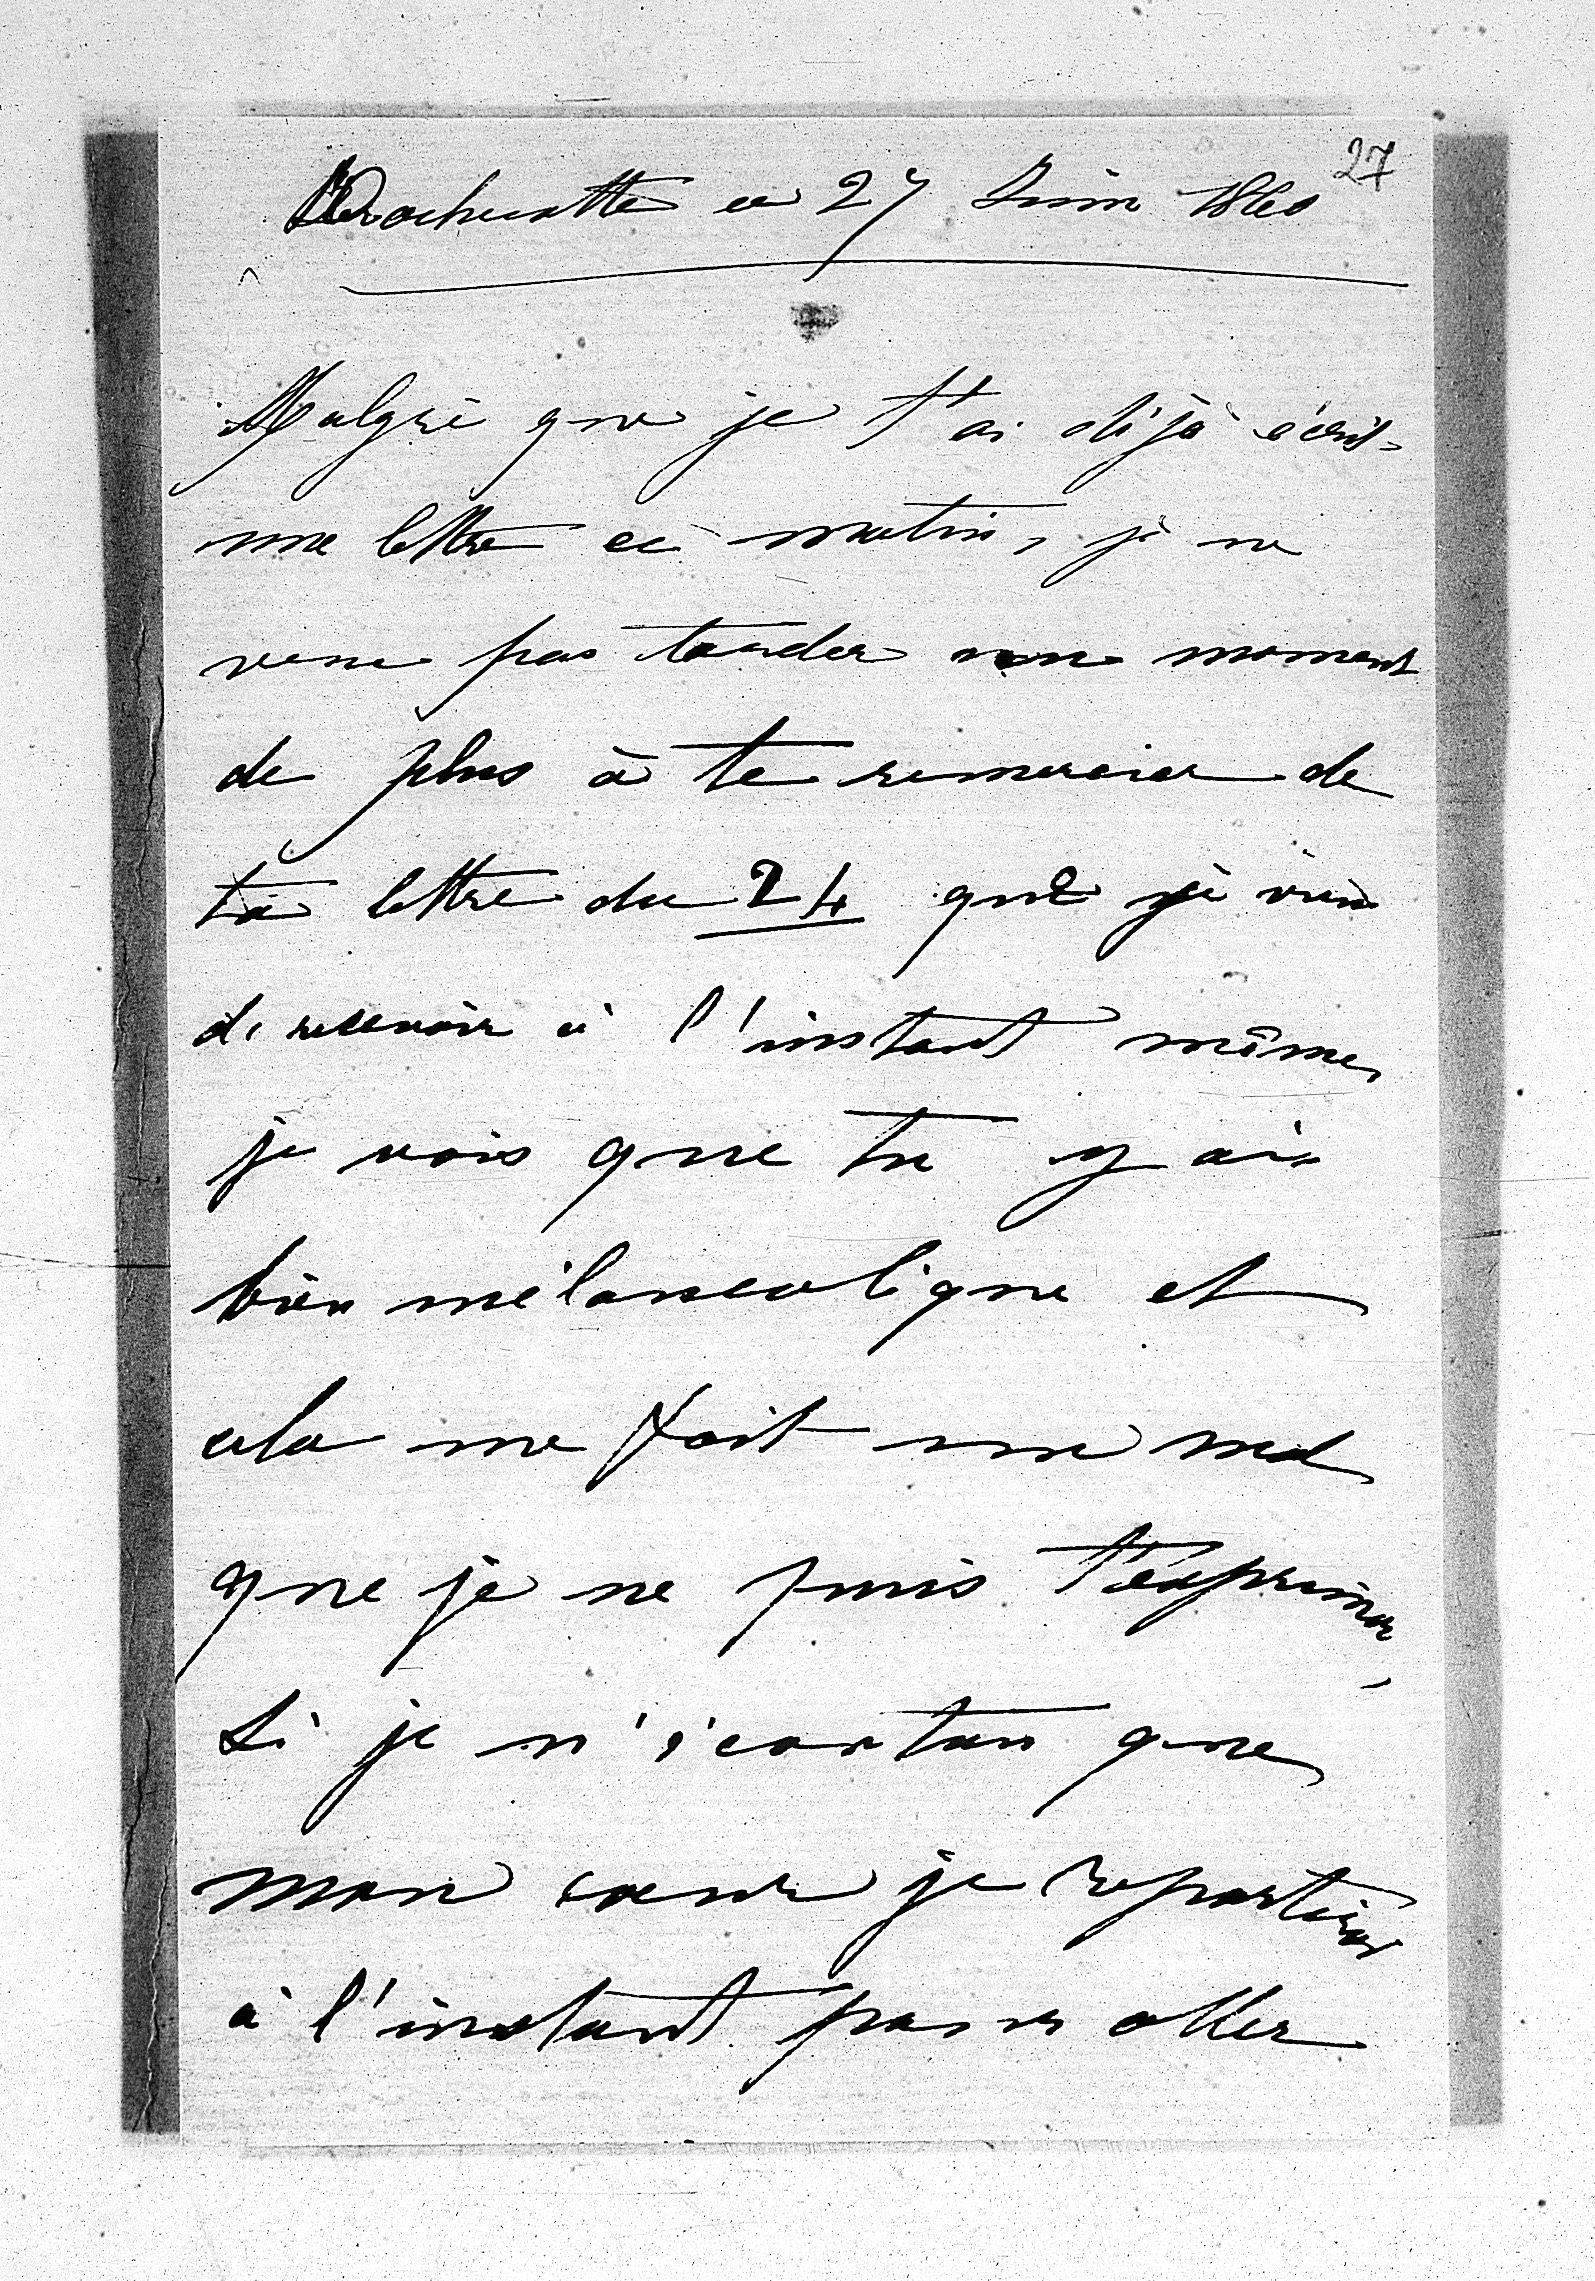 27
Rochecotte ce 27 Juin 1860
Malgré que je t'ai déjà écrit
une lettre ce matin, je ne
veux pas tarder un moment
de plus à te remercier de
ta lettre du 24 que je viens
de recevoir à l'instant même,
je vois que tu y ais
bien mélancolique et
cela me fait un mal
que je ne puis t'exprimer,
Si je n'écoutais que
mon cœur je repartirais
à l'instant pour aller